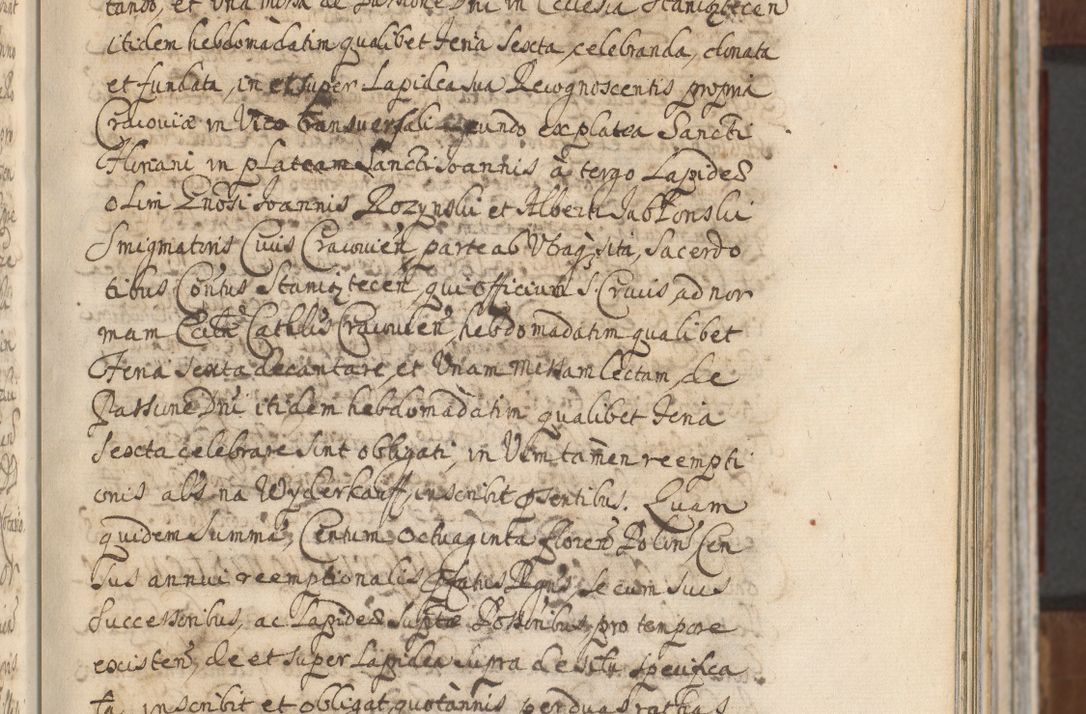 tando, et Una missa de Passione Dni in Ecclesia Staniątecen
itidem hebdomadatim qualibet feria Sexta, celebranda, donata
et fundata, in et super Lapidea sua Recognoscentis propria
Cracoviæ in Vico transversali eundo ex platea Sancti
Floriani in plateam Sancti Joannis à tergo Lapideę
olim Gnosi Joannis Rozynski et Alberti Jabłonski
Smigmatoris Civis Cracovien, parte ab Utraq; sita, Sacerdo
tibus Contus Staniątecen, qui officium S. Crucis, ad nor
mam Eccle Cathlis Cracovien, hebdomadatim qualibet
Feria Sexta decantare, et Unam Missam lectam, de
Passione Dni itidem hebdomadatim qualibet feria
Sexta celebrare sint obligati, in Vim tamen reempti
onis als na Wyderkauff, inscribit psentibus. Quam
quidem Summą, Centum octuaginta floren Polin Cen
sus annui reemptionalis pfatus Rgns, se cum suis
Successoribus, ac Lapideę suptæ Possoribus, pro tempore
existen, de et super Lapidea supra de situ specifica
ta, inscribit et obligat, quotannis per duas rathas